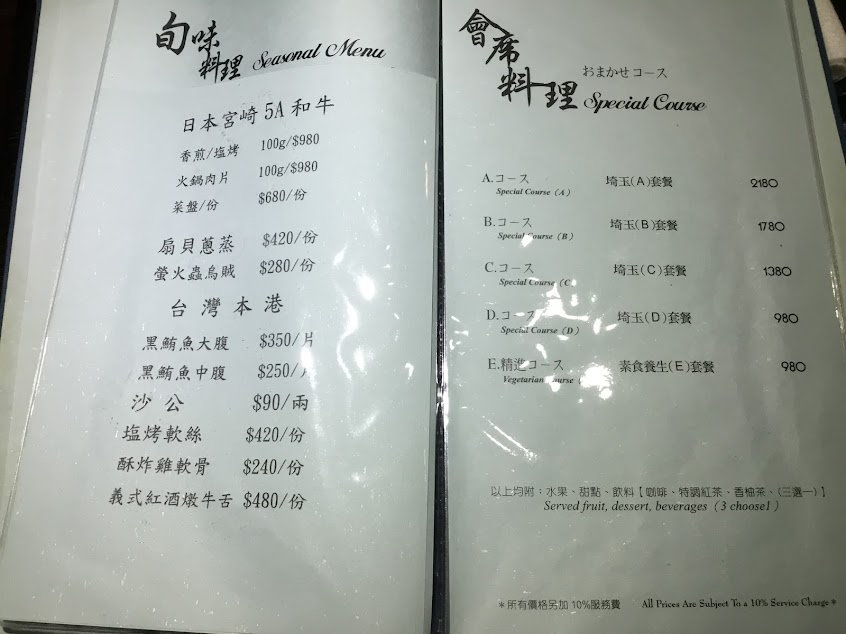 旬味料理 Seasonal Menu
日本宮崎 5A 和牛
香煎/塩烤 100g/$980
火鍋肉片 100g/$980
菜盤/份 $680/份
扇貝蔥蒸 $420/份
螢火蟲烏賊 $280/份
台灣本港
黑鮪魚大腹 $350/片
黑鮪魚中腹 $250/
沙公 $90/兩
塩烤軟絲 $420/份
酥炸雞軟骨 $240/份
義式紅酒燉牛舌 $480/份
會席料理 おまかせコース Special Course
A.コース 埼玉(A)套餐 2180
Special Course (A)
B.コース 埼玉(B)套餐 1780
Special Course (B)
C.コース 埼玉(C)套餐 1380
Special Course (C
D.コース 埼玉(D)套餐 980
Special Course (D)
E.精進コース 素食養生(E)套餐 980
Vegetarian Course (
以上均附：水果、甜點、飲料【咖啡、特調紅茶、香柚茶、(三選一)】
Served fruit, dessert, beverages (3 choose1)
*所有價格另加 10%服務費 All Prices Are Subject To a 10% Service Charge*